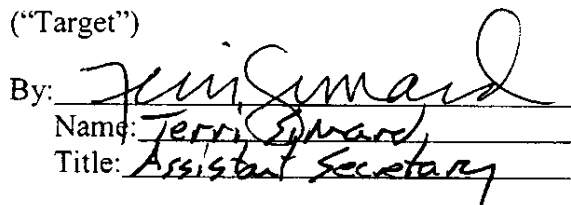 (“Target”)
By: Terri Simard
Name: Terri Simard
Title: Assistant Secretary